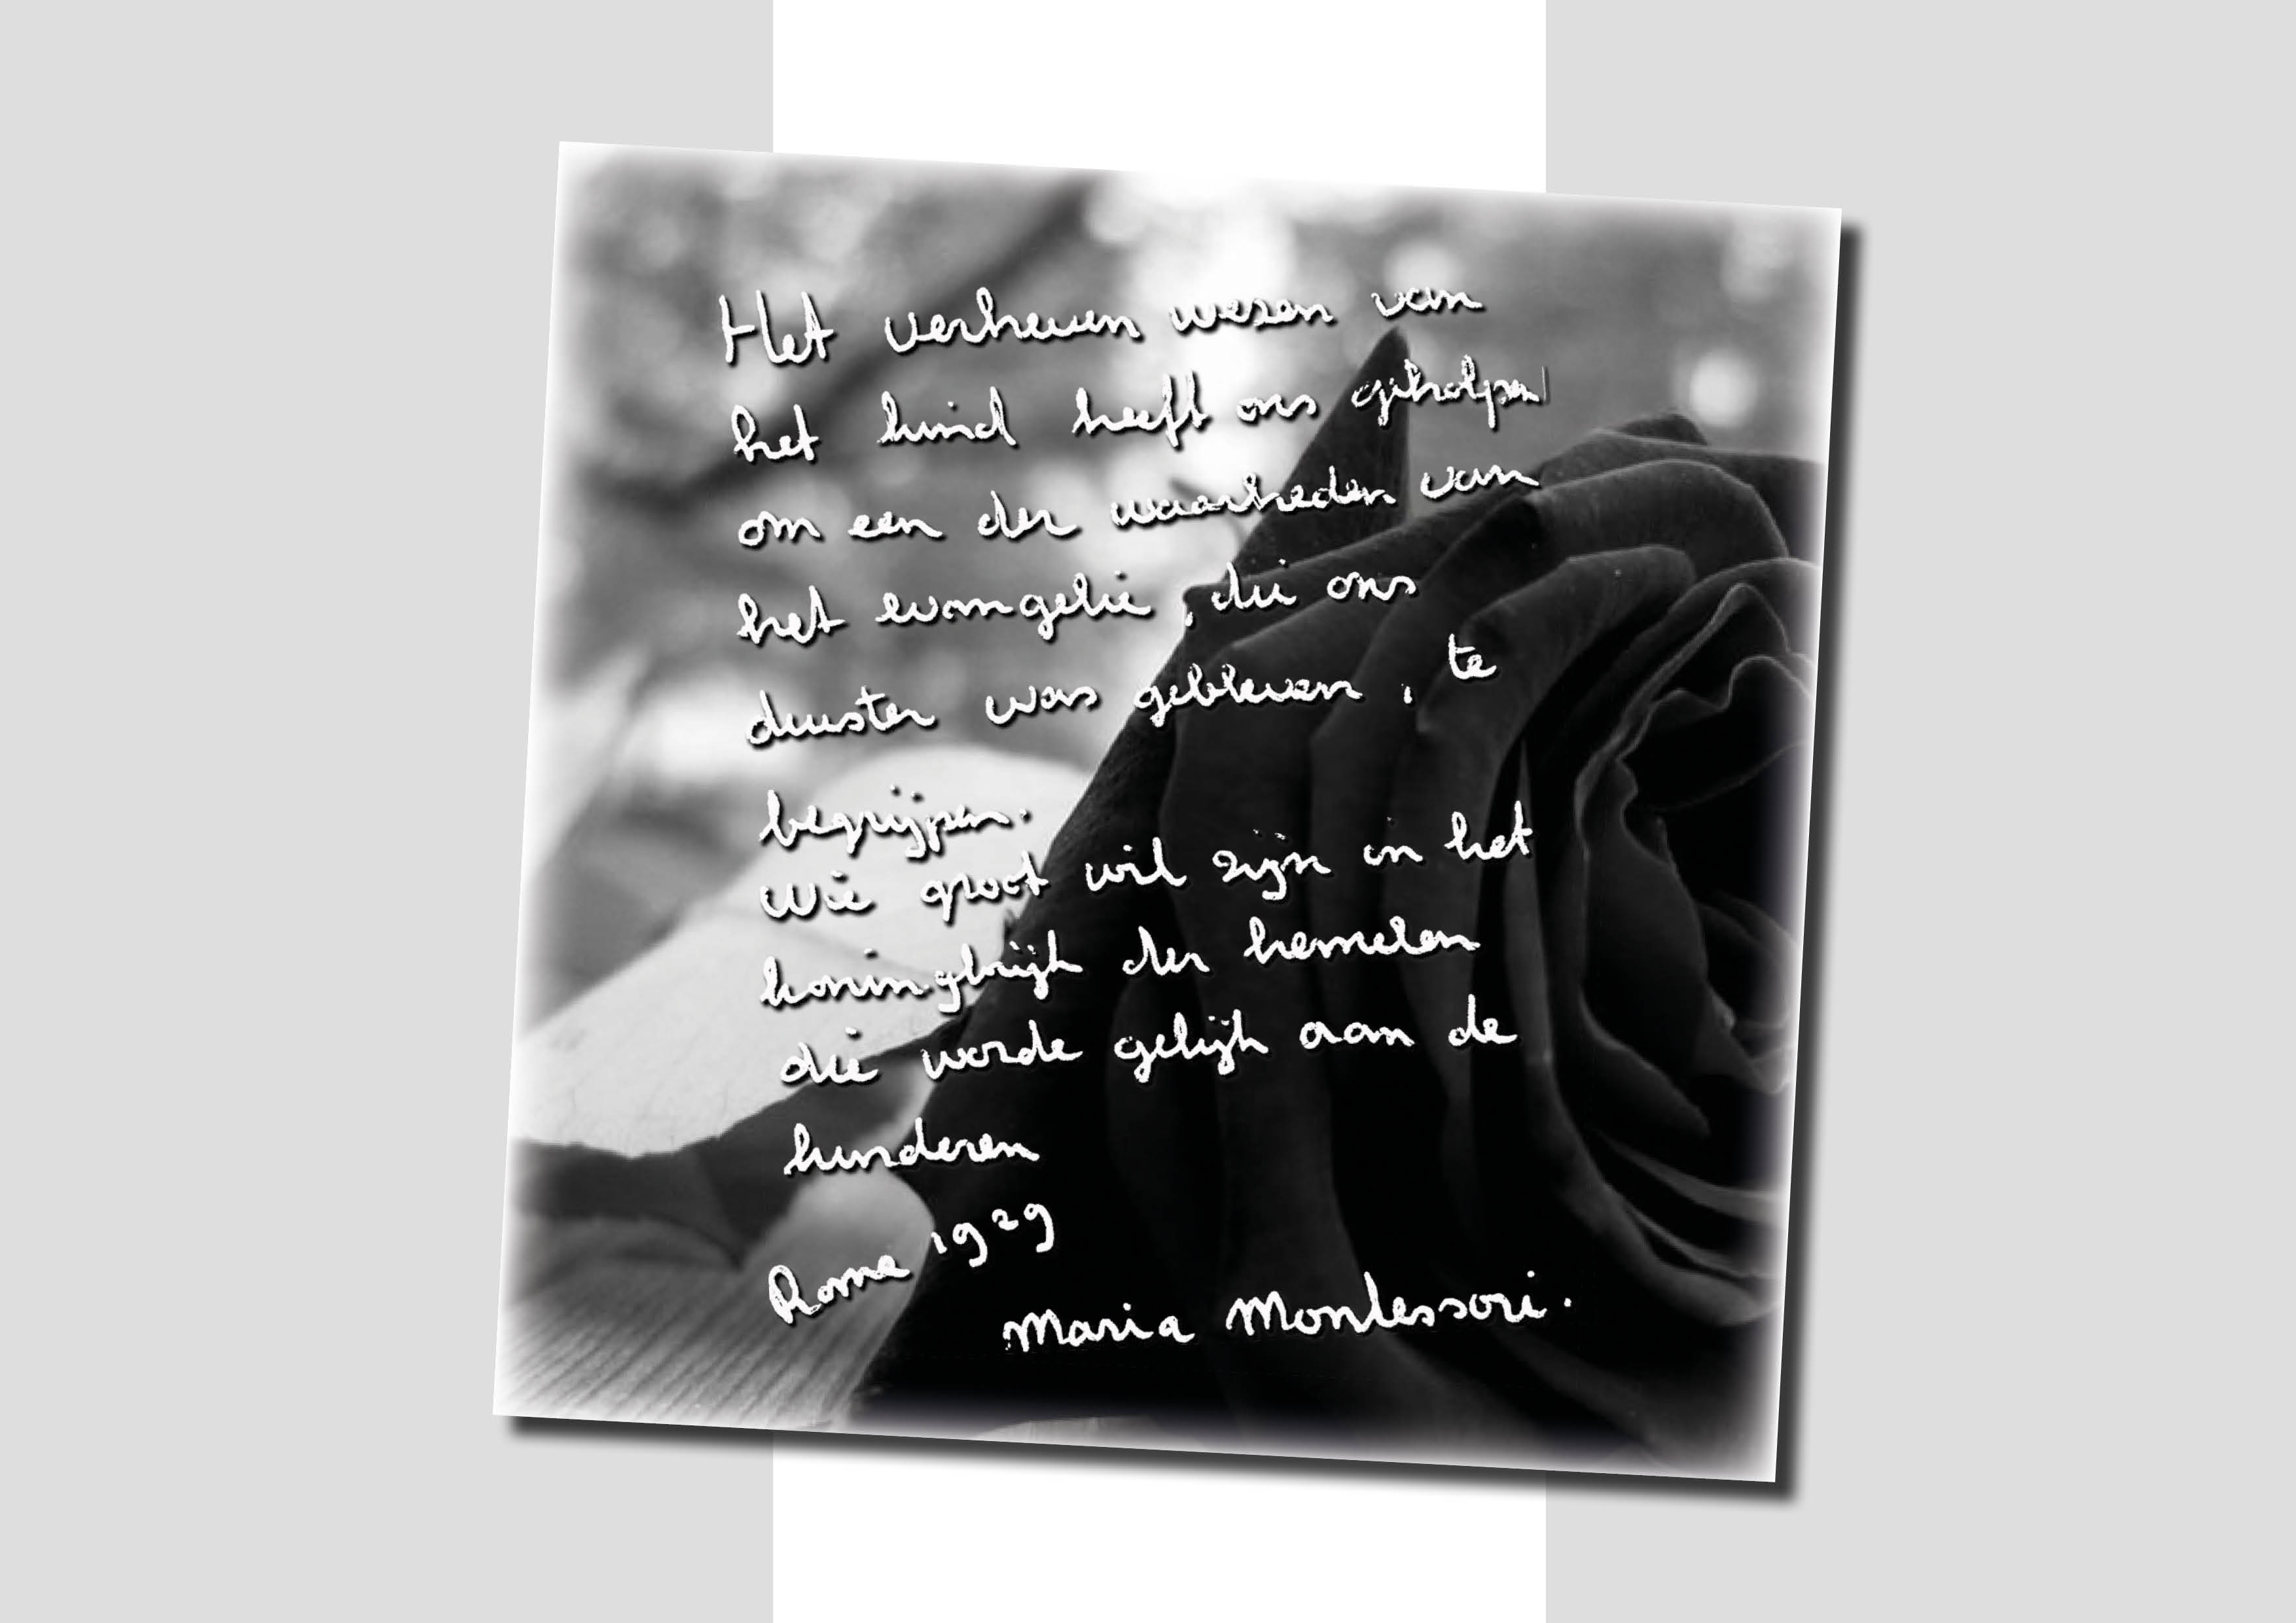 Het verheven wezen van
het kind heeft ons geholpen
om een der waarheden van
het evangelie, die ons
duister was gebleven, te
begrijpen.
Wie groot wil zijn in het
koningkrijk der hemelen
die worde gelijk aan de
kinderen
Rome 1929
Maria Montessori.